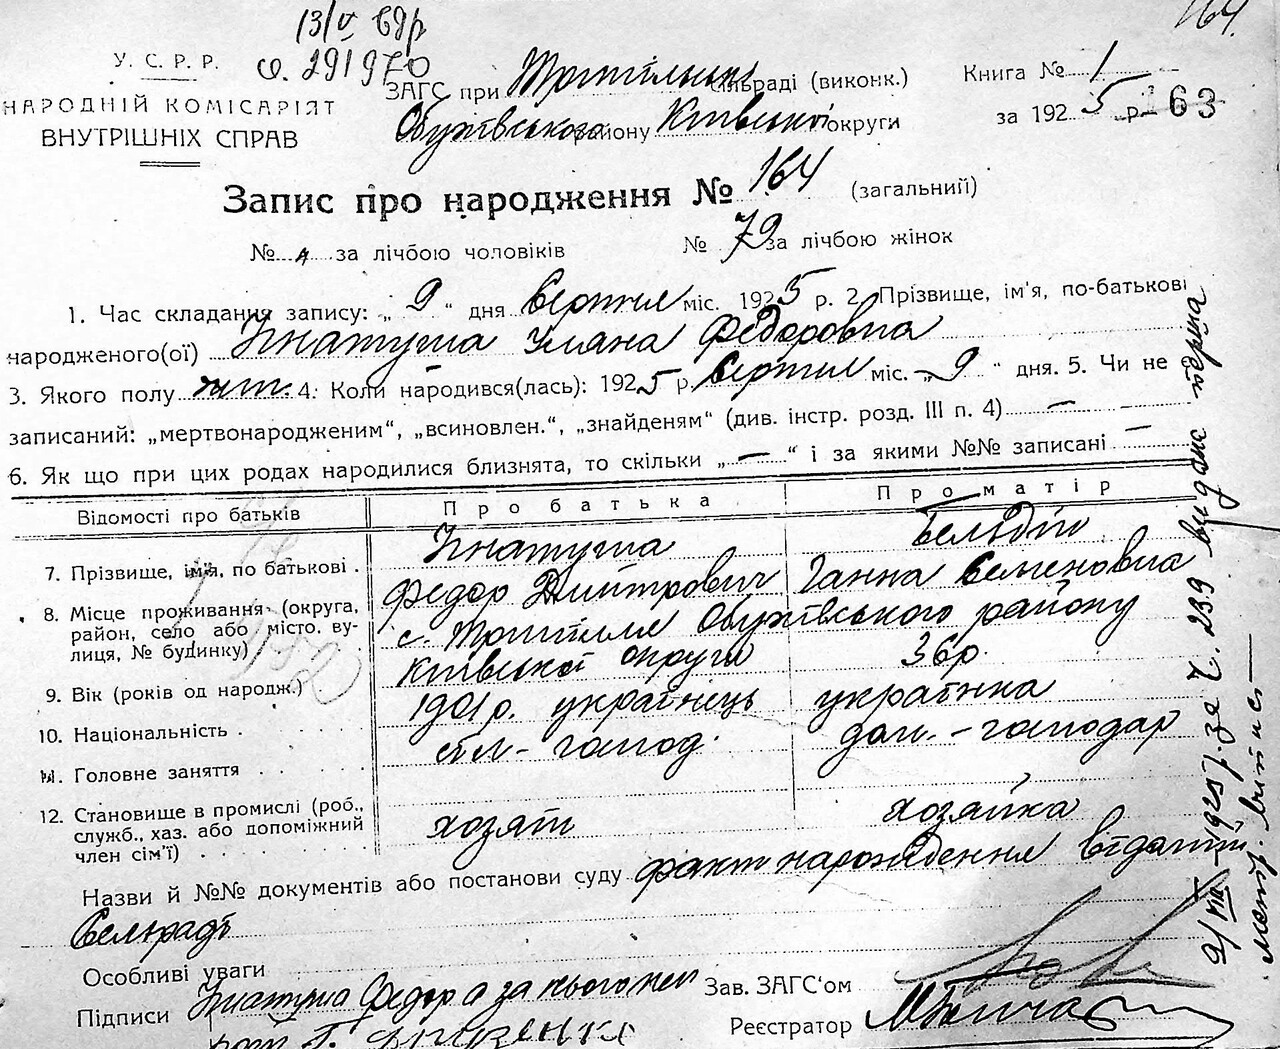 13/V 69р
164.
У. С. Р. Р.
ф. 291970
НАРОДНІЙ КОМІСАРІЯТ
ВНУТРІШНІХ СПРАВ
ЗАГС при Трипільськ сільраді (виконк.)
Обухівського району Київської округи
Книга № 1
за 1925 р. 163
Запис про народження № 164 (загальний)
№ за лічбою чоловіків № 79 за лічбою жінок
1. Час складання запису: „ 9 “ дня Вересня міс. 1925 р. 2. Прізвище, ім'я, по-батькові
народженого(ої) Гнатуша Уляна Федоровна
3. Якого полу жін. 4. Коли народився(лась): 1925 р. Вересня міс. „ 9 “ дня. 5. Чи не
записаний: „мертвонародженим“, „всиновлен.“, „знайденям“ (див. інстр. розд. III п. 4) —
6. Як що при цих родах народилися близнята, то скільки „ — “ і за якими №№ записані —
Відомості про батьків Про батька Про матір
7. Прізвище, ім'я, по батькові .
Гнатуша
Федор Дмитрович
Ганна Семеновна
8. Місце проживання (округа,
район, село або місто, ву-
лиця, № будинку)
с. Трипілля Обухівського району
Київської округи
9. Вік (років од народж.)
1901 р.
36 р.
10. Національність .
українець
українка
11. Головне заняття
сіл-господ.
дом.-господар
12. Становище в промислі (роб.,
служб., хаз. або допоміжний
член сім'ї)
хозяїн
хозяйка
Назви й №№ документів або постанови суду факт народження
Сельрадь
Особливі уваги
Підписи Гнатуша Федор а за нього
Зав. ЗАГС'ом
Реєстратор
9/VIII-1925 р. за Ч. 239 видане перша
метр. випис